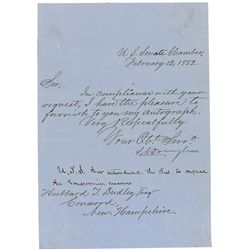 U.S. Senate Chamber,
February 12, 1852.
Sir,
In compliance with your
request, I have the pleasure to
furnish to you my autograph.
Very Respectfully
Your Obt. Servt.
introduced the Bill to repeal
the Compromise
Hubbard T. Dudley, Esq
Concord,
New Hampshire.